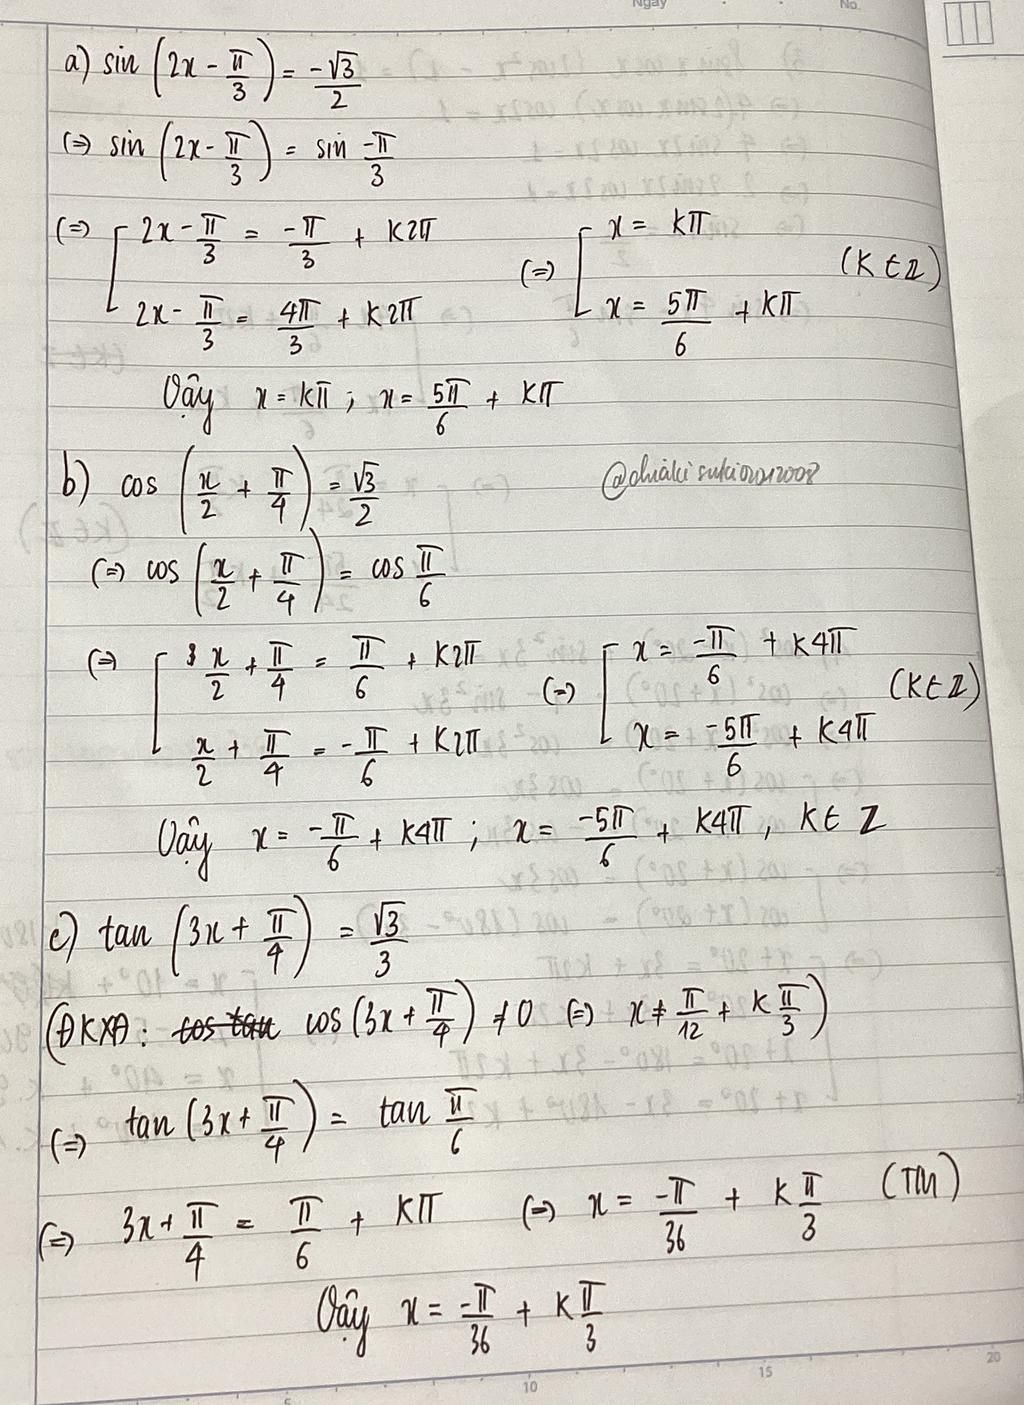 Ngày No.
a) sin (2x - π/3) = -√3/2
(=) sin (2x - π/3) = sin -π/3
(=) [ 2x - π/3 = -π/3 + k2π (=) [ x = kπ (k ∈ Z)
2x - π/3 = 4π/3 + k2π x = 5π/6 + kπ
Vậy x = kπ ; x = 5π/6 + kπ
b) cos (x/2 + π/4) = √3/2
@chiakisuki02012008
(=) cos (x/2 + π/4) = cos π/6
(=) [ x/2 + π/4 = π/6 + k2π (=) [ x = -π/6 + k4π (k ∈ Z)
x/2 + π/4 = -π/6 + k2π x = -5π/6 + k4π
Vậy x = -π/6 + k4π ; x = -5π/6 + k4π , k ∈ Z
c) tan (3x + π/4) = √3/3
(ĐKXĐ: cos tan cos (3x + π/4) ≠ 0 (=) x ≠ π/12 + k π/3)
(=) tan (3x + π/4) = tan π/6
(=) 3x + π/4 = π/6 + kπ (=) x = -π/36 + k π/3 (TM)
Vậy x = -π/36 + k π/3
5 10 15 20